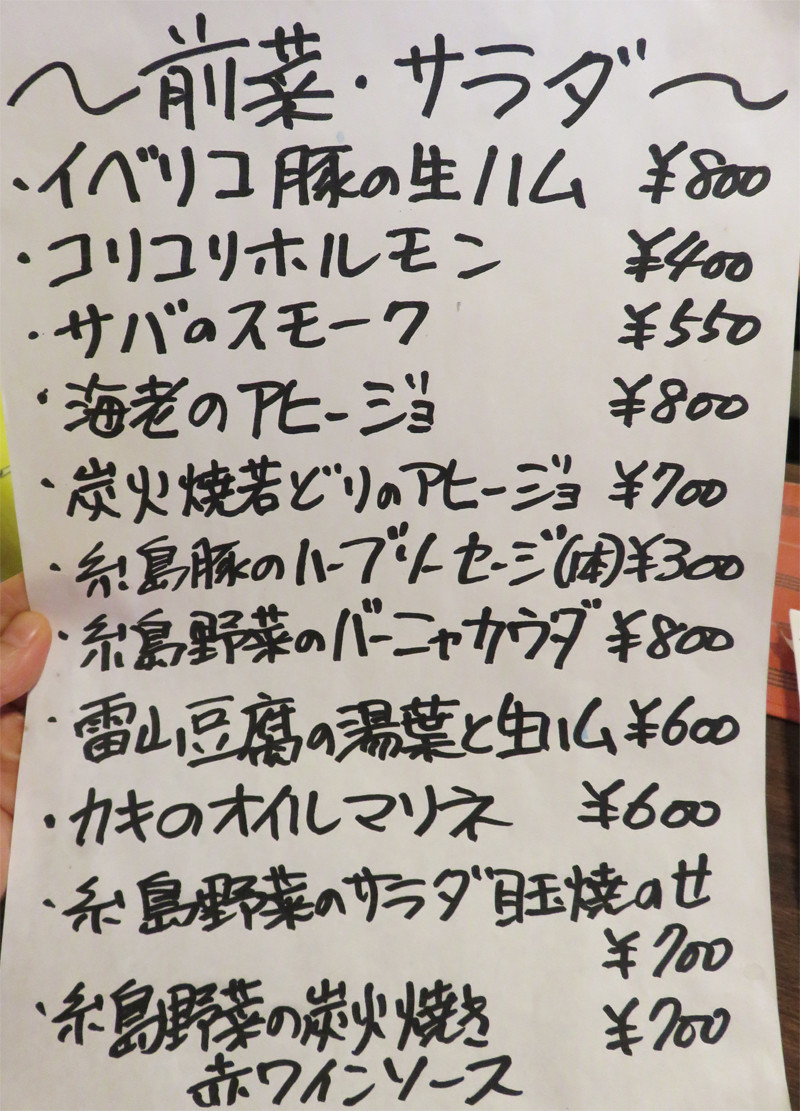 〜前菜・サラダ〜
・イベリコ豚の生ハム ¥800
・コリコリホルモン ¥400
・サバのスモーク ¥550
・海老のアヒージョ ¥800
・炭火焼若どりのアヒージョ ¥700
・糸島豚のハーブソーセージ(1本)¥300
・糸島野菜のバーニャカウダ ¥800
・雷山豆腐の湯葉と生ハム ¥600
・カキのオイルマリネ ¥600
・糸島野菜のサラダ目玉焼のせ
¥700
・糸島野菜の炭火焼き ¥700
赤ワインソース